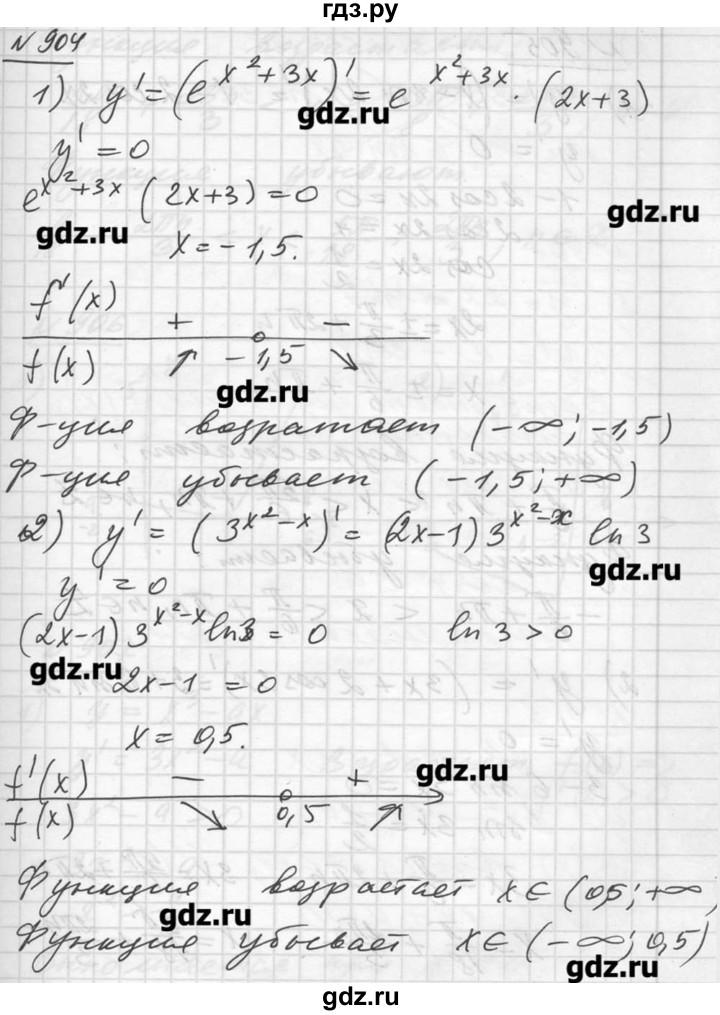 гдз.ру
№ 904
1) y' = (e^{x²+3x})' = e^{x²+3x} · (2x+3)
gdz.ru
y' = 0
e^{x²+3x} (2x+3) = 0
gdz.ru
gdz.ru
x = -1,5.
f'(x) + −
f(x) ↗ -1,5 ↘
gdz.ru
Ф-ция возратает (-∞; -1,5)
Ф-ция убывает (-1,5; +∞)
2) y' = (3^{x²-x})' = (2x-1) 3^{x²-x} ln 3
gdz.ru
y' = 0
(2x-1) 3^{x²-x} ln 3 = 0 ln 3 > 0
gdz.ru
2x-1 = 0
x = 0,5.
gdz.ru
f'(x) − +
f(x) ↘ 0,5 ↗
Функция возрастает x∈(0,5; +∞)
gdz.ru
Функция убывает x∈(-∞; 0,5)
gdz.ru
gdz.ru